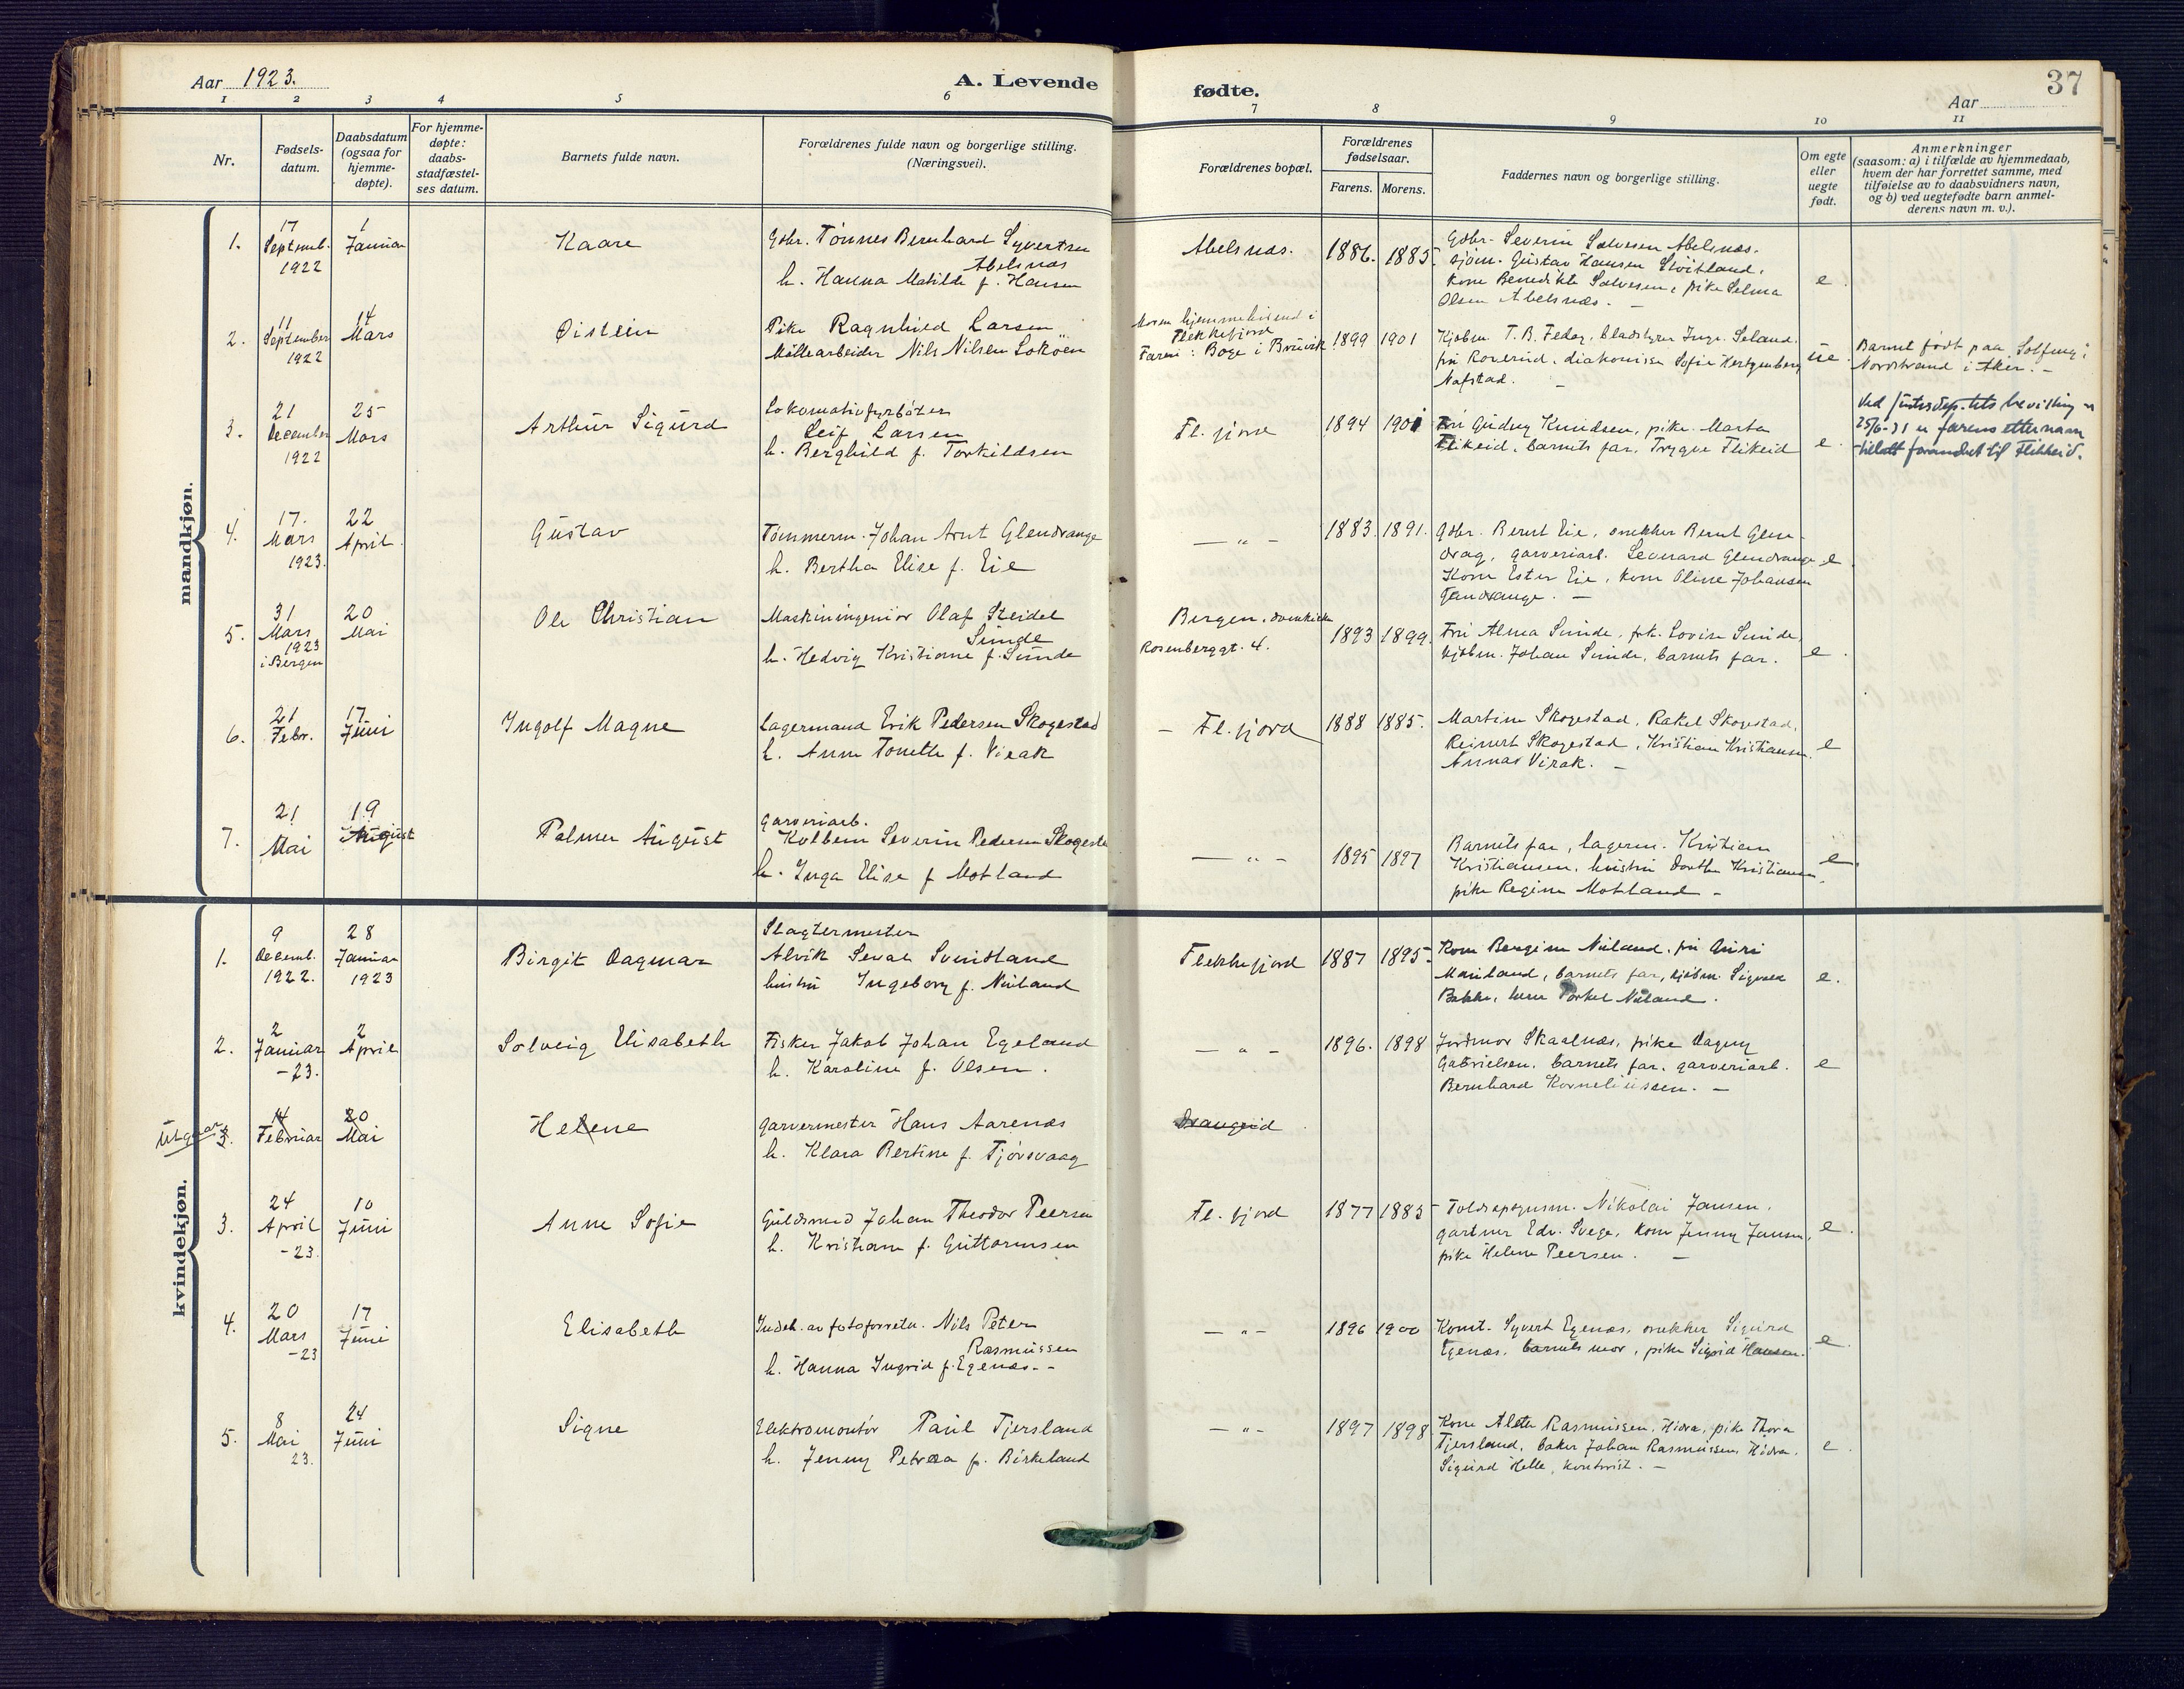 Aar 1923.
A. Levende fødte.
Aar
37
1 2 3 4 5 6 7 8 9 10 11
Nr.
Fødsels-
datum.
Daabsdatum
(ogsaa for
hjemme-
døpte).
For hjemme-
døpte:
daabs-
stadfæstel-
ses datum.
Barnets fulde navn.
Forældrenes fulde navn og borgerlige stilling.
(Næringsvei).
Forældrenes bopæl.
Forældrenes
fødselsaar.
Farens. Morens.
Faddernes navn og borgerlige stilling.
Om egte
eller
uegte
født.
Anmerkninger
(saasom: a) i tilfælde av hjemmedaab,
hvem der har forrettet samme, med
tilføielse av to daabsvidners navn,
og b) ved uegtefødte barn anmel-
derens navn m. v.).
mandkjøn.
1.
17
Septemb.
1922
1
Januar
Kaare
Gbr. Tønnes Bernhard Syvertsen
Abelsnæs
h. Hanna Matilde f. Hansen
Abelsnæs.
1886. 1885.
Gbr. Severin Salvesen Abelsnæs.
sjøm. Gustav Hansen
kone Benedikte Salvesen, pike Selma
Olsen Abelsnæs. -
e.
2.
11
September
1922
14
Mars
Øistein
Pike Ragnhild Larsen
Møllearbeider Nils Nilsen Lokøen
Moren hjemmehørende i
Flekkefjord
Faren: Boge i Bruvik
1899 1901
Kjøbm. T. B. Feday, bladstyrer Inge Seland.
fru Roverud, diakonisse Sofie
Nafstad. -
ue.
Barnet født paa Solhaug i
Nordstrand i Aker. -
3.
21
December
1922
25
Mars
Arthur Sigurd
Lokomotivfyrbøter
Leif Larsen
h. Berghild f. Torkildsen
Fl. fjord
1894 1901
Fru Gudny Knudsen, pike Marta
Flikeid, barnets far, Trygve Flikeid
e.
Ved Justisdep-tets bevilling av
25/6-31 er farens etternavn
tillatt forandret til Flikkeid.
4.
17.
Mars
1923.
22
April
Gustav
Tømmerm. Johan Arnt Glendrange
h. Bertha Elise f. Eie
— " —
1883. 1891.
Gbr. Bernt Eie, snekker Bernt Glen-
drag, garveriarb. Severard Glendrange
Kone Ester Eie, kone Oline Johansen
-
e.
5.
31
Mars
1923
i Bergen
20
Mai
Ole Christian
Maskiningeniør Olaf Steidel
Sunde
h. Hedvig Kristiane f. Sunde
Bergen, domkirke
Rosenberggt. 4.
1893 1899.
Fru Alma Sunde, frk. Lovise Sunde,
kjøbm. Johan Sunde, barnets far.
e.
6.
21
Febr.
17
Juni
Ingolf Magne
Lagermand Erik Pedersen Skogestad
h. Anne Tonette f. Virak
- Fl. fjord
1888 1885.
Martine Skogestad, Rakel Skogestad,
Reinert Skogestad, Kristian Kristiansen.
Annas Virak. -
e
7.
21
Mai
19
August
Palmer August
garveriarb.
Kolbein Severin Pedersen Skogestad
h. Inga Elise f Motland
— " —
1895 1897
Barnets far, lagerm. Kristian
Kristiansen, hustru Dorthe Kristiansen,
pike Regine Motland -
e.
kvindekjøn.
1.
9
Decemb.
1922.
28
Januar
1923
Birgit Dagmar
Slagtermester
Alrik Sevat Svindland
hustru Ingeborg f. Nuland
Flekkefjord
1887 1895.
Kone Bergine Nuland, fru Guri
Mauland, barnets far, kjøbm. Sigurd
Bakke, Torkel Nuland.
e.
2.
2
Januar
-23.
2
April
Solveig Elisabeth
Fisker Jakob Johan Egeland
h. Karoline f. Olsen.
— " —
1896. 1898
Jordmor Skaalnæs, pike Dagny
Gabrielsen, barnets far, garveriarb.
Bernhard Korneliussen. -
e
Utgaar
3.
14
Februar
20
Mai
Helene
garvermester Hans Aarenæs
h. Klara Bertine f. Tjørsvaag
Drangeid
3.
24
April
-23.
10
Juni
Anne Sofie
Guldsmed Johan Theodor Peersen
h. Kristiane f. Guttormsen
Fl. fjord
1877 1885
Toldopsynsm. Nikolai Jansen.
gartner Edv. Svege, kone Jenny Jansen,
pike Helene Peersen. -
e.
4.
20
Mars
-23
17
Juni
Elisabeth
Indeh. av fotoforretn. Nils Peter
Rasmussen
h. Hanna Ingrid f. Egenæs. -
— " —
1896 1900
Kont. Syvert Egenæs, snekker Sigurd
Egenæs, barnets mor, pike Sigrid Hansen.
e.
5.
8
Mai
23.
24
Juni
Signe
Elektromontør Paul Tjersland
h. Jenny Petrea f. Birkeland
— " —
1897 1898
Kone Alette Rasmussen, Hidra, pike Thora
Tjersland, baker Johan Rasmussen, Hidra,
Sigurd Helle, kontorist. -
e.